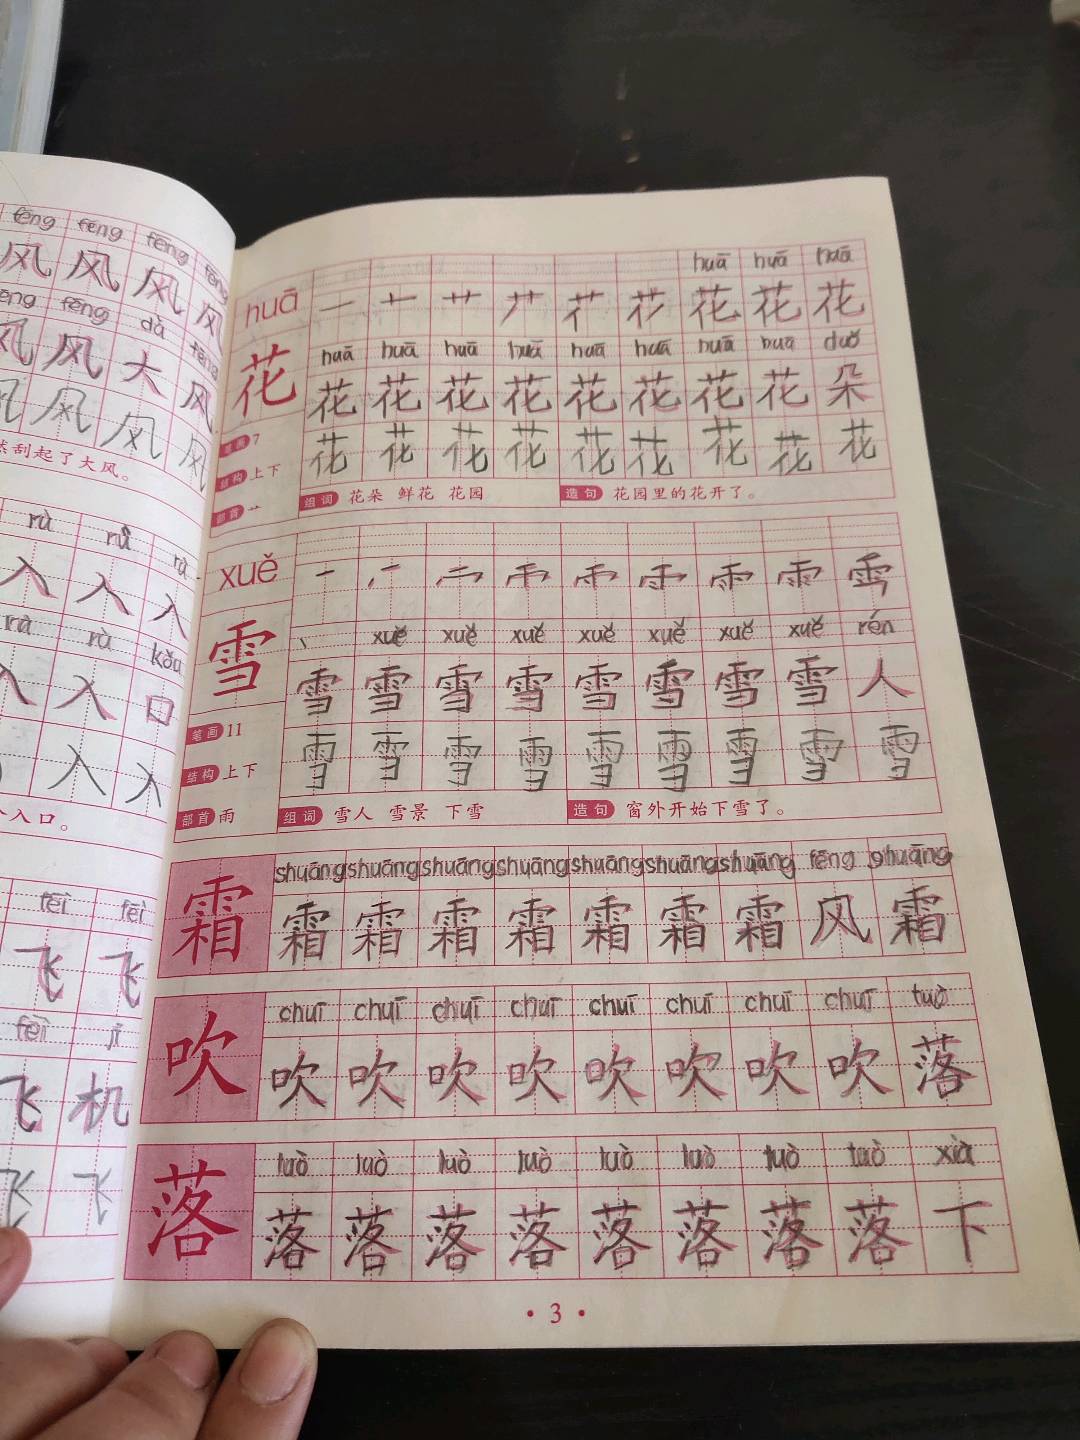 fēng fēng fēng fēng
风 风 风 风
fēng fēng dà fēng
风 风 大 风
风 风 风 风
然刮起了大风。
rù rù rù
入 入 入
rù rù kǒu
入 入 口
入 入
入口。
fēi fēi
飞 飞
fēi jī
飞 机
飞 飞
huā huā huā huā
一 花 花 花
花 huā huā huā huā huā huā huā huā duǒ
花 花 花 花 花 花 花 花 朵
笔画 7
花 花 花 花 花 花 花 花 花
结构 上下
部首 艹
组词 花朵 鲜花 花园 造句 花园里的花开了。
xuě
一
雪 xuě xuě xuě xuě xuě xuě xuě rén
雪 雪 雪 雪 雪 雪 雪 雪 人
笔画 11
雪 雪 雪 雪 雪 雪 雪 雪 雪
结构 上下
部首 雨
组词 雪人 雪景 下雪 造句 窗外开始下雪了。
shuāng shuāng shuāng shuāng shuāng shuāng shuāng fēng shuāng
霜 霜 霜 霜 霜 霜 霜 霜 风 霜
chuī chuī chuī chuī chuī chuī chuī chuī luò
吹 吹 吹 吹 吹 吹 吹 吹 吹 落
luò luò luò luò luò luò luò luò xià
落 落 落 落 落 落 落 落 落 下
• 3 •